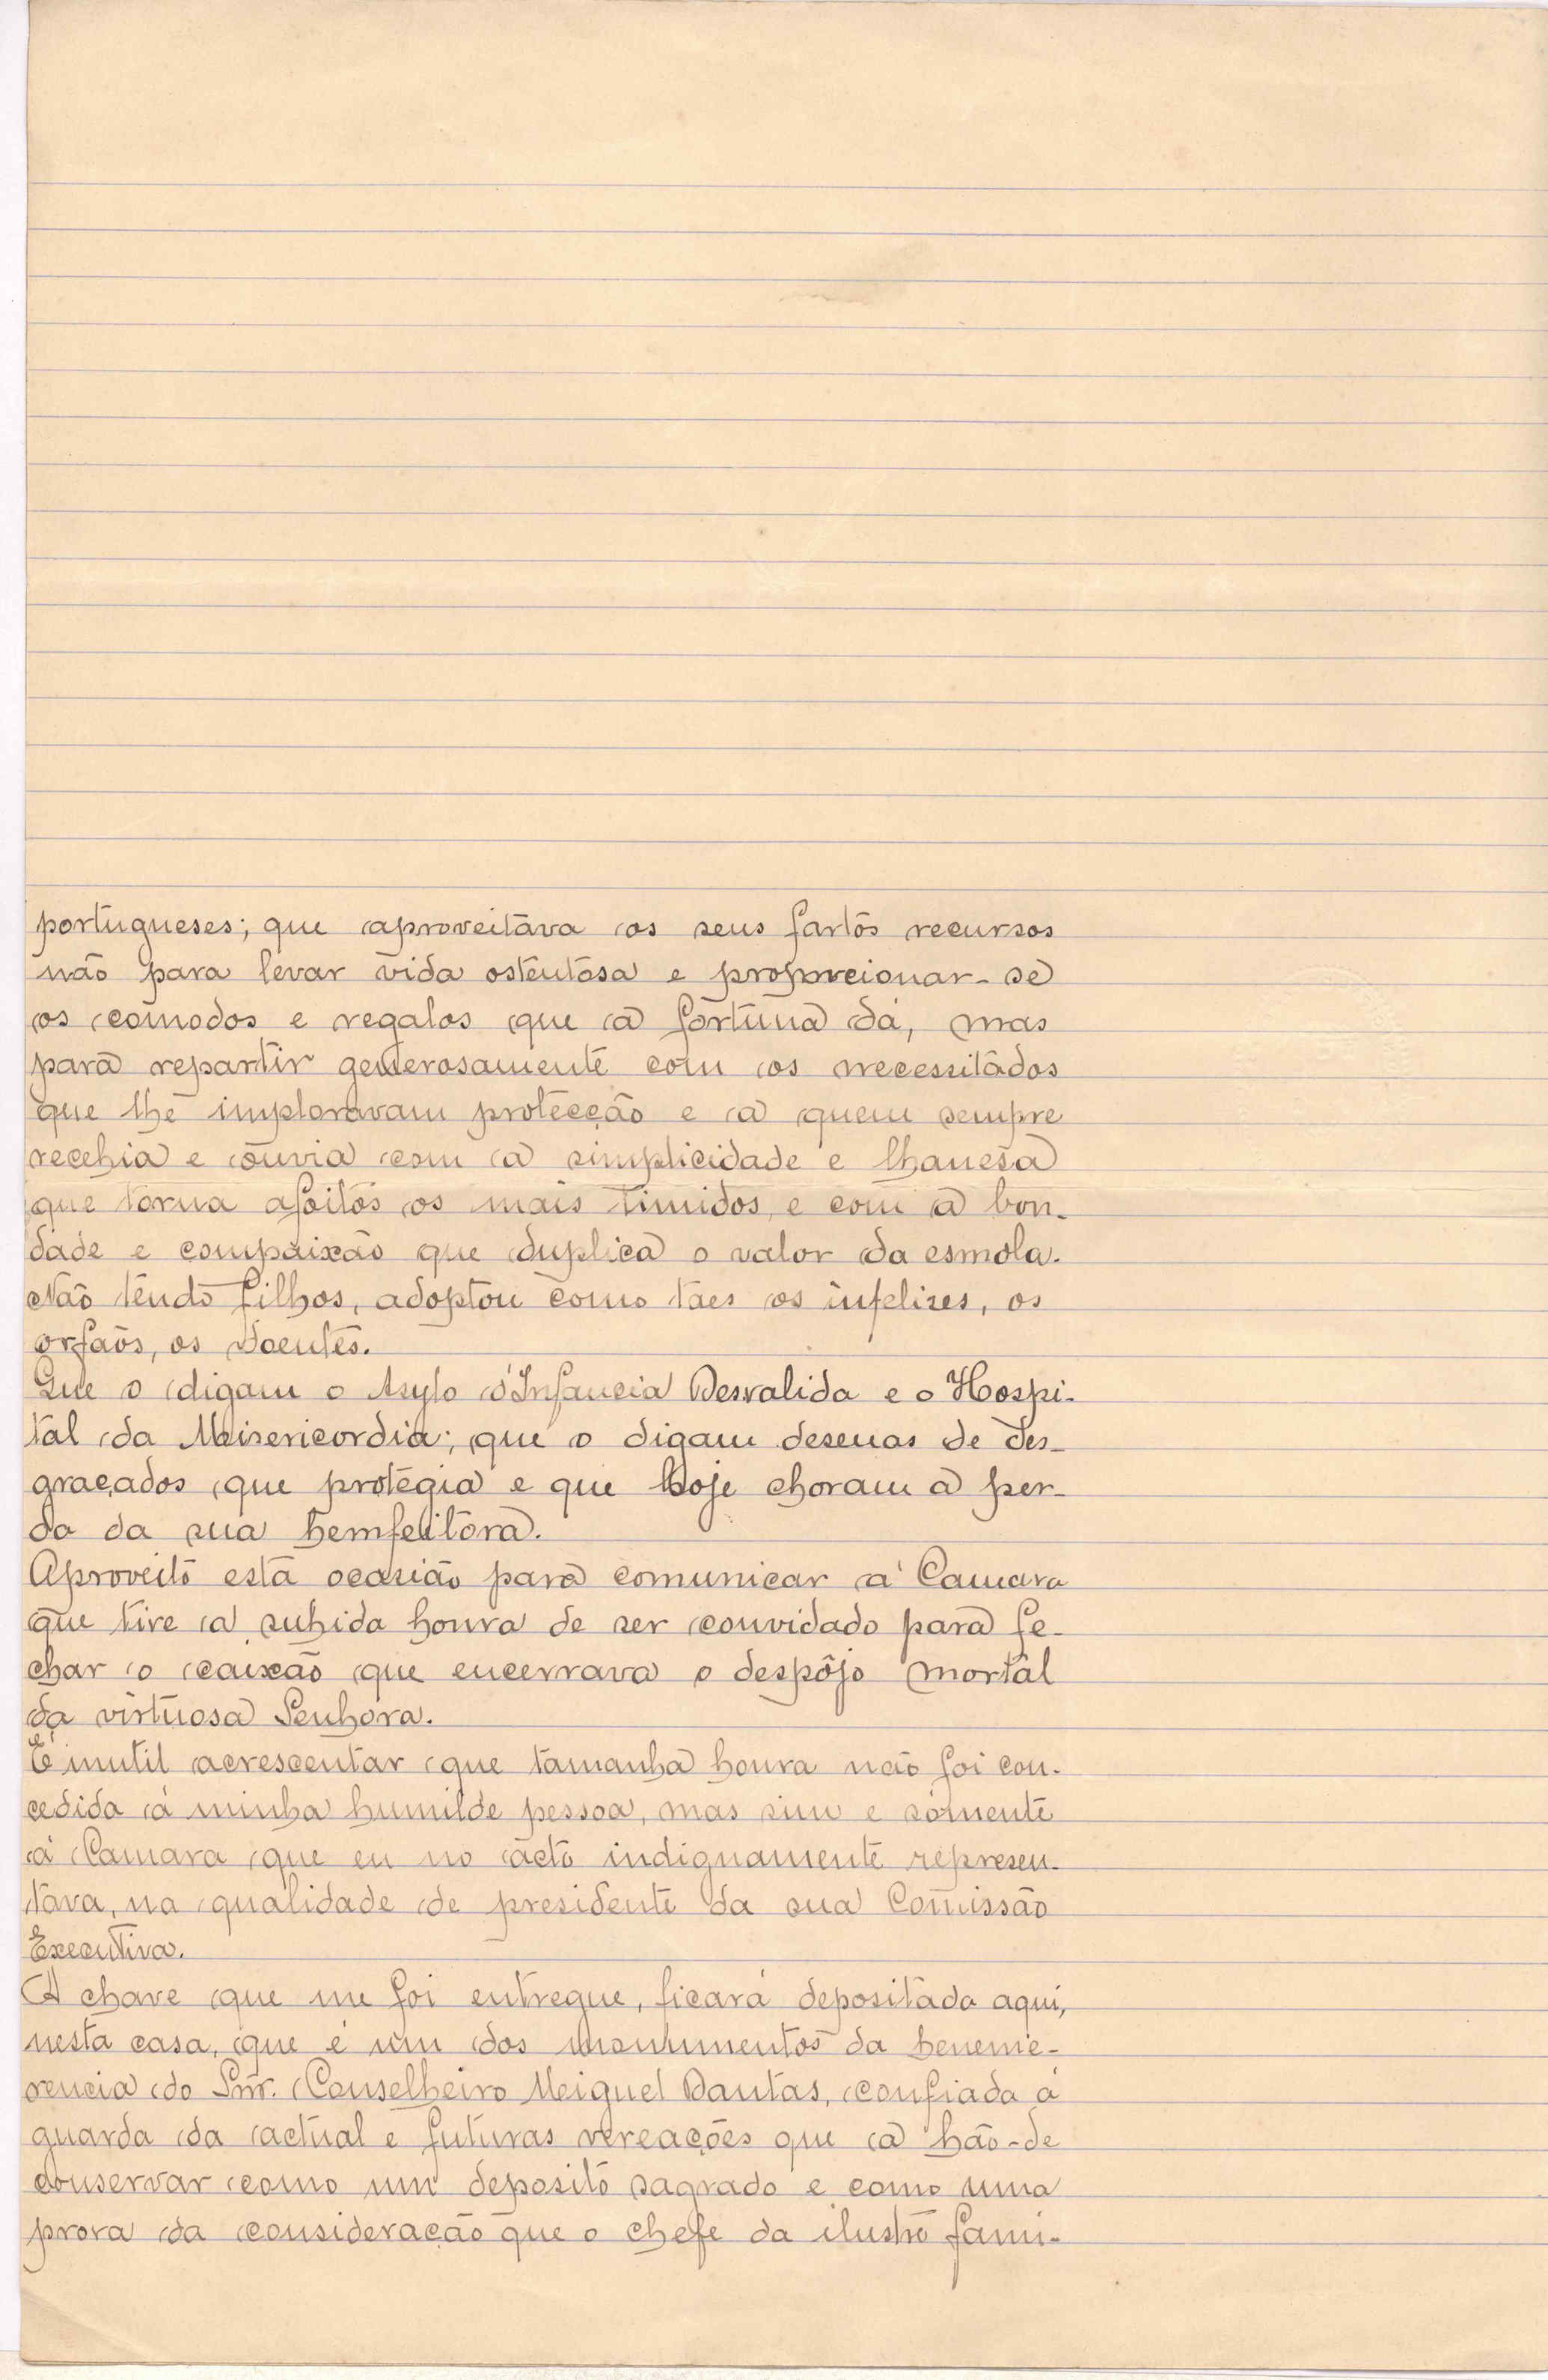 portugueses; que aproveitava os seus fartos recursos
não para levar vida ostentosa e proporcionar-se
os comodos e regalos que a fortuna dá, mas
para repartir generosamente com os necessitados
que lhe imploravam protecção e a quem sempre
recebia e ouvia com a simplicidade e lhanesa
que torna afoitos os mais timidos, e com a bon-
dade e compaixão que duplica o valor da esmola.
Não tendo filhos, adoptou como taes os infelizes, os
orfaõs, os doentes.
Que o digam o Asylo d'Infancia Desvalida e o Hospi-
tal da Misericordia; que o digam desenas de des-
graçados que protegia e que hoje choram a per-
da da sua bemfeitora.
Aproveito esta ocasião para comunicar á Camara
que tive a subida honra de ser convidado para fe-
char o caixão que encerrava o despôjo mortal
da virtuosa Senhora.
É inutil acrescentar que tamanha honra não foi con-
cedida á minha humilde pessoa, mas sim e sómente
á Camara que eu no acto indignamente represen-
tava, na qualidade de presidente da sua Comissão
Executiva.
A chave que me foi entregue, ficará depositada aqui,
nesta casa, que é um dos monumentos da beneme-
rencia do Snr. Conselheiro Miguel Dantas, confiada á
guarda da actual e futuras vereações que a hão-de
conservar como um deposito sagrado e como uma
prova da consideração que o chefe da ilustre fami-